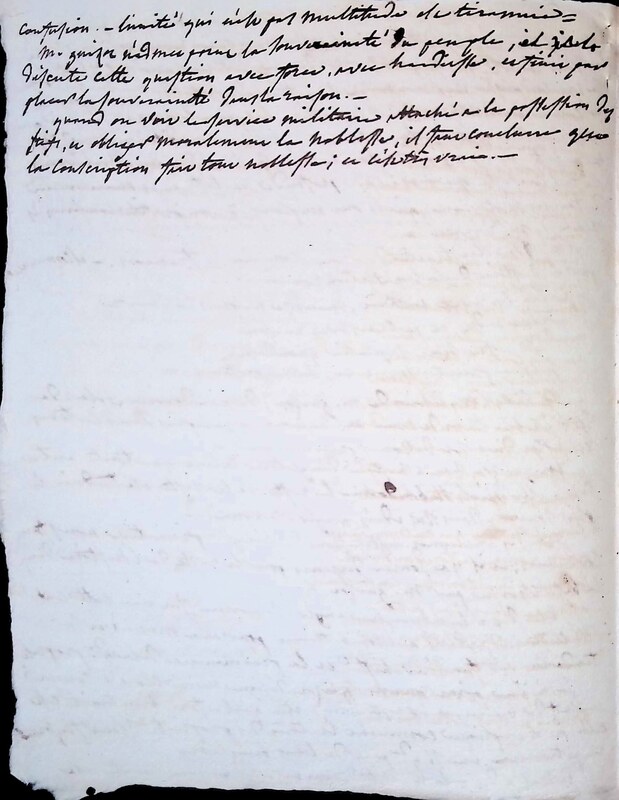 confusion. – l'unité qui n'est pas multitude est tirannie =
mr guizot n'admet point la souveraineté du peuple, et
discute cette question avec force, avec hardiesse, et finit par
placer la souveraineté dans la raison. –
quand on voit le service militaire attaché a la possession des
fiefs, et obliger moralement la noblesse, il faut conclure que
la conscription fait tout noblesse; et c'est très vrai. –